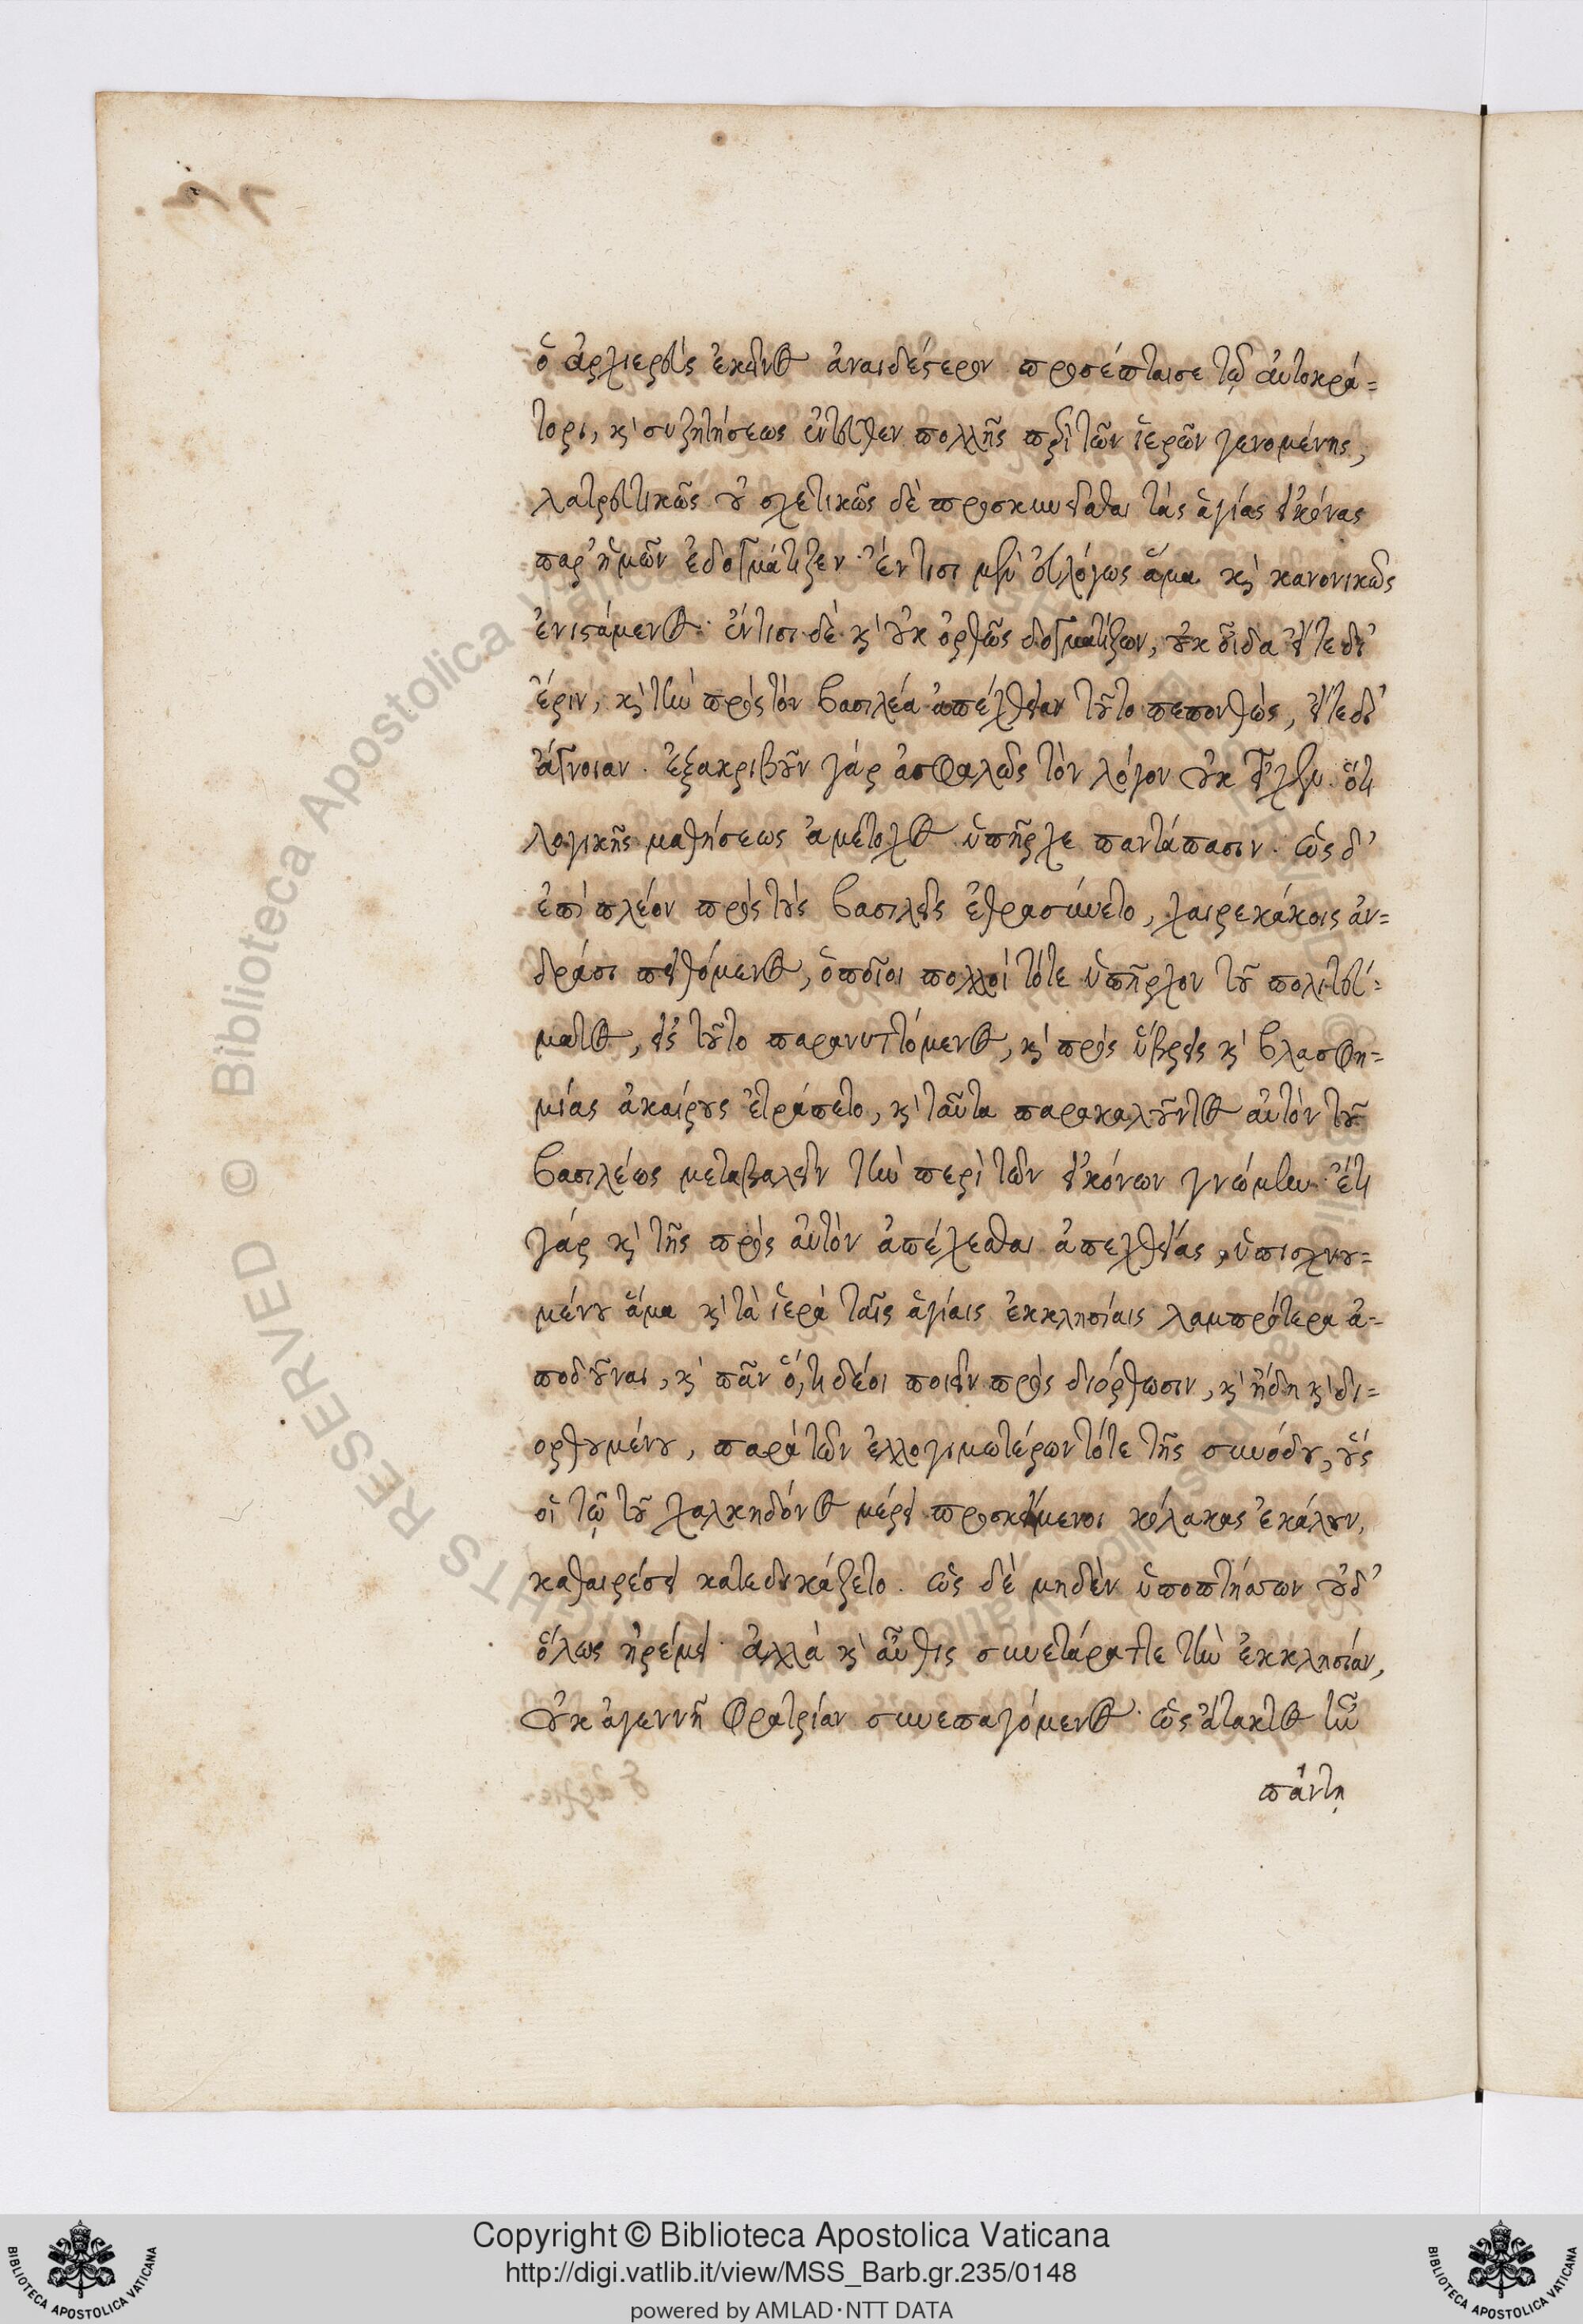 ὁ ἀρχιερεὺς ἐκεῖνος ἀναιδέστερον προσέπταισε τῷ αὐτοκρά=
τορι, κ̀ συζητήσεως ἐντεῦθεν πολλῆς περὶ τῶν ἱερῶν γενομένης,
λατρευτικῶς οὐ σχετικῶς δὲ προσκυνεῖσθαι τὰς ἁγίας εἰκόνας
παρ' ἡμῶν ἐδογμάτιζεν· ἔν τισι μὲν εὐλόγως ἅμα κ̀ κανονικῶς
ἐνιστάμενος· ἔν τισι δὲ κ̀ οὐκ ὀρθῶς δογματίζων, οὐκ οἶδα εἴτε δι'
ἔριν, κ̀ τὴν πρὸς τὸν βασιλέα ἀπέχθειαν τοῦτο πεπονθὼς, εἴτε δι'
ἄγνοιαν. ἐξακριβοῦν γὰρ ἀσφαλῶς τὸν λόγον οὐκ εἶχεν. ὅτι
λογικῆς μαθήσεως ἀμέτοχος ὑπῆρχε παντάπασιν. ὡς δ'
ἐπὶ πλέον πρὸς τοὺς βασιλεῖς ἐθρασύνετο, χαιρεκάκοις ἀν=
δράσι πειθόμενος, ὁποῖοι πολλοὶ τότε ὑπῆρχον τοῦ πολιτεύ=
ματος, εἰς τοῦτο παρανυττόμενος, κ̀ πρὸς ὕβρεις κ̀ βλασφη=
μίας ἀκαίρους ἐτράπετο, κ̀ ταῦτα παρακαλοῦντος αὐτὸν τοῦ
βασιλέως μεταβαλεῖν τὴν περὶ τῶν εἰκόνων γνώμην· ἔτι
γὰρ κ̀ τῆς πρὸς αὐτὸν ἀπέχεσθαι ἀπεχθείας, ὑπισχνου=
μένου ἅμα κ̀ τὰ ἱερὰ ταῖς ἁγίαις ἐκκλησίαις λαμπρότερα ἀ=
ποδοῦναι, κ̀ πᾶν ὅ, τι δέοι ποιεῖν πρὸς διόρθωσιν, κ̀ ἤδη κ̀ δι=
ορθουμένου, παρὰ τῶν ἐλλογιμωτέρων τότε τῆς συνόδου, οὓς
οἱ τῷ τοῦ χαλκηδόνος μέρει προσκείμενοι κόλακας ἐκάλουν,
καθαιρέσει κατεδικάζετο. ὡς δὲ μηδὲν ὑποπτήσσων οὐδ'
ὅλως ἠρέμει· ἀλλὰ κ̀ αὖθις συνετάραττε τὴν ἐκκλησίαν,
οὐκ ἀγεννῆ φρατρίαν συνεπαγόμενος· ὡς ἄτακτος ὢν
πάντῃ
Copyright © Biblioteca Apostolica Vaticana
http://digi.vatlib.it/view/MSS_Barb.gr.235/0148
powered by AMLAD·NTT DATA